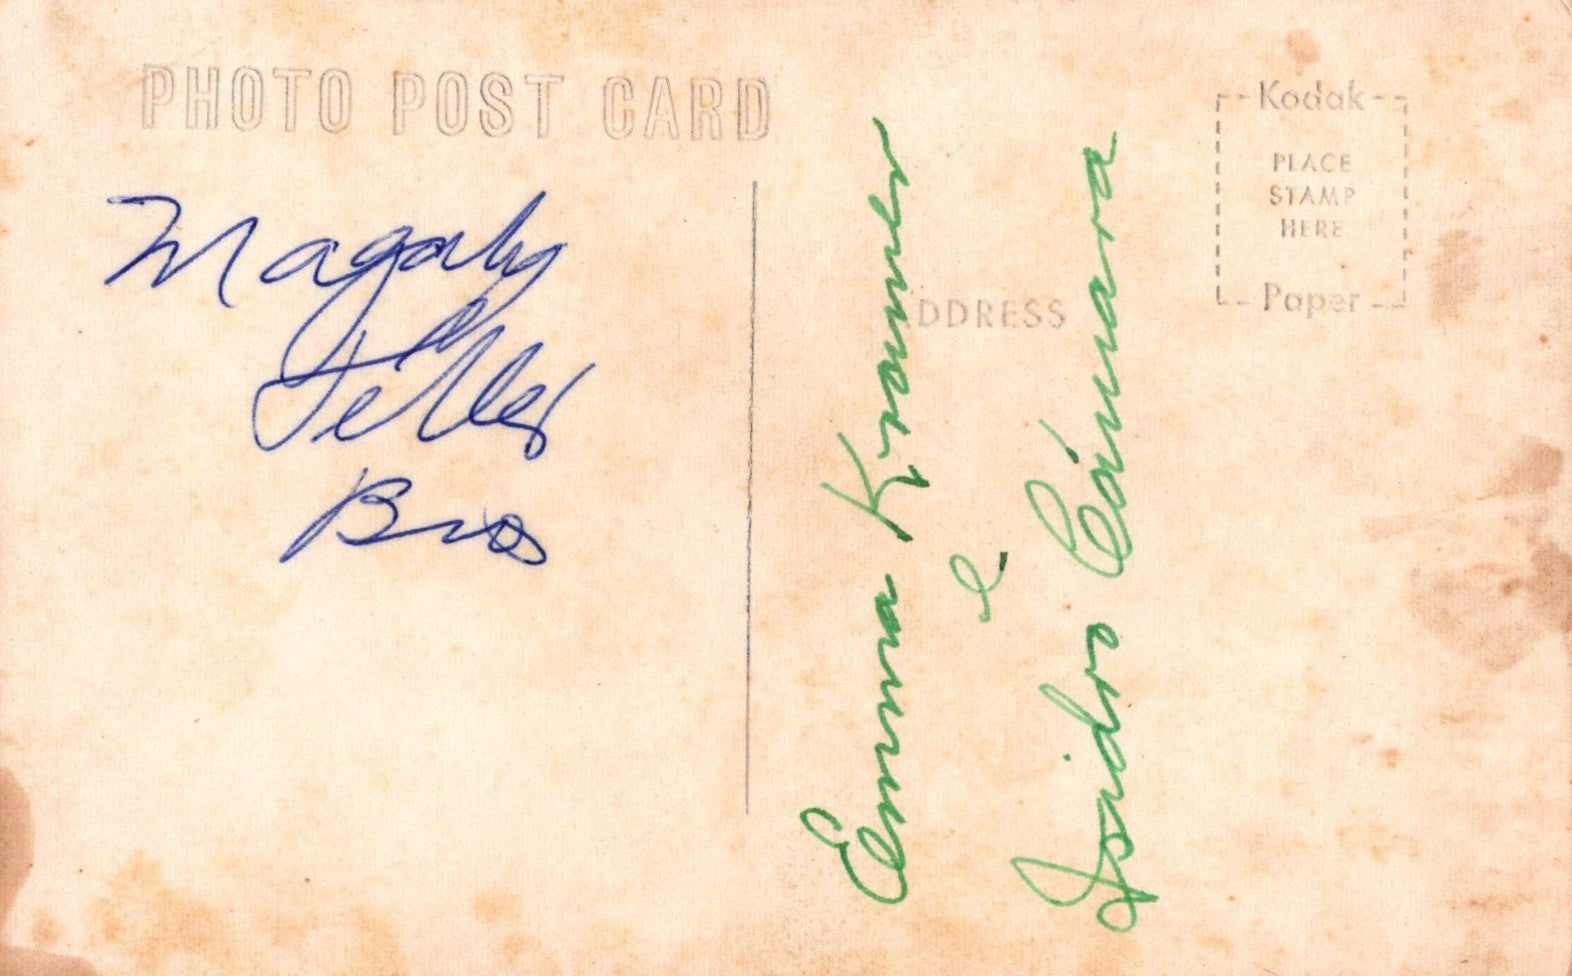 PHOTO POST CARD
Magaly
Teller
Bros
Emma Kramer
e
Isidro Cámara
DDRESS
Kodak
PLACE
STAMP
HERE
Paper